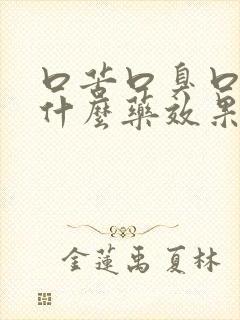 口苦口臭口
什麼藥效果
金蓮禹夏林